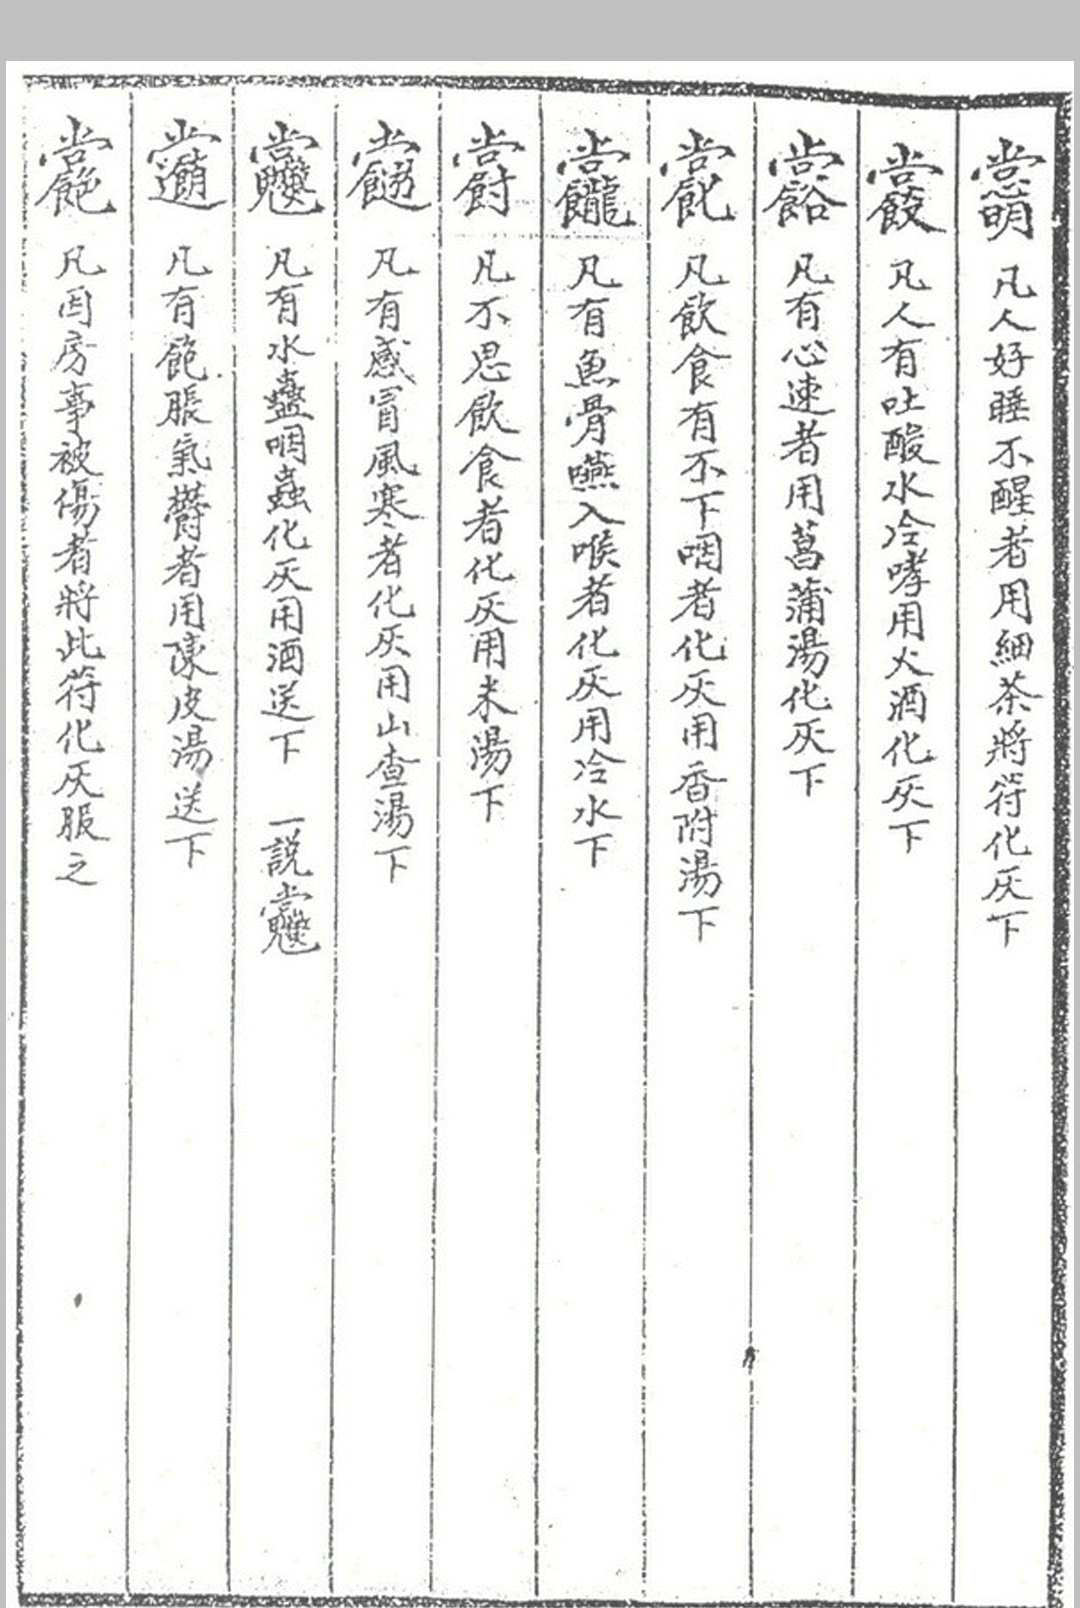 凡人好睡不醒者用細茶將符化灰下
凡人有吐酸水冷哮用火酒化灰下
凡有心速者用菖蒲湯化灰下
凡飲食有不下咽者化灰用香附湯下
凡有魚骨嚥入喉者化灰用冷水下
凡不思飲食者化灰用米湯下
凡有感冒風寒者化灰用山查湯下
凡有水蠱咽蟲化灰用酒送下 一説
凡有飽脹氣欝者用陳皮湯送下
凡因房事被傷者將此符化灰服之